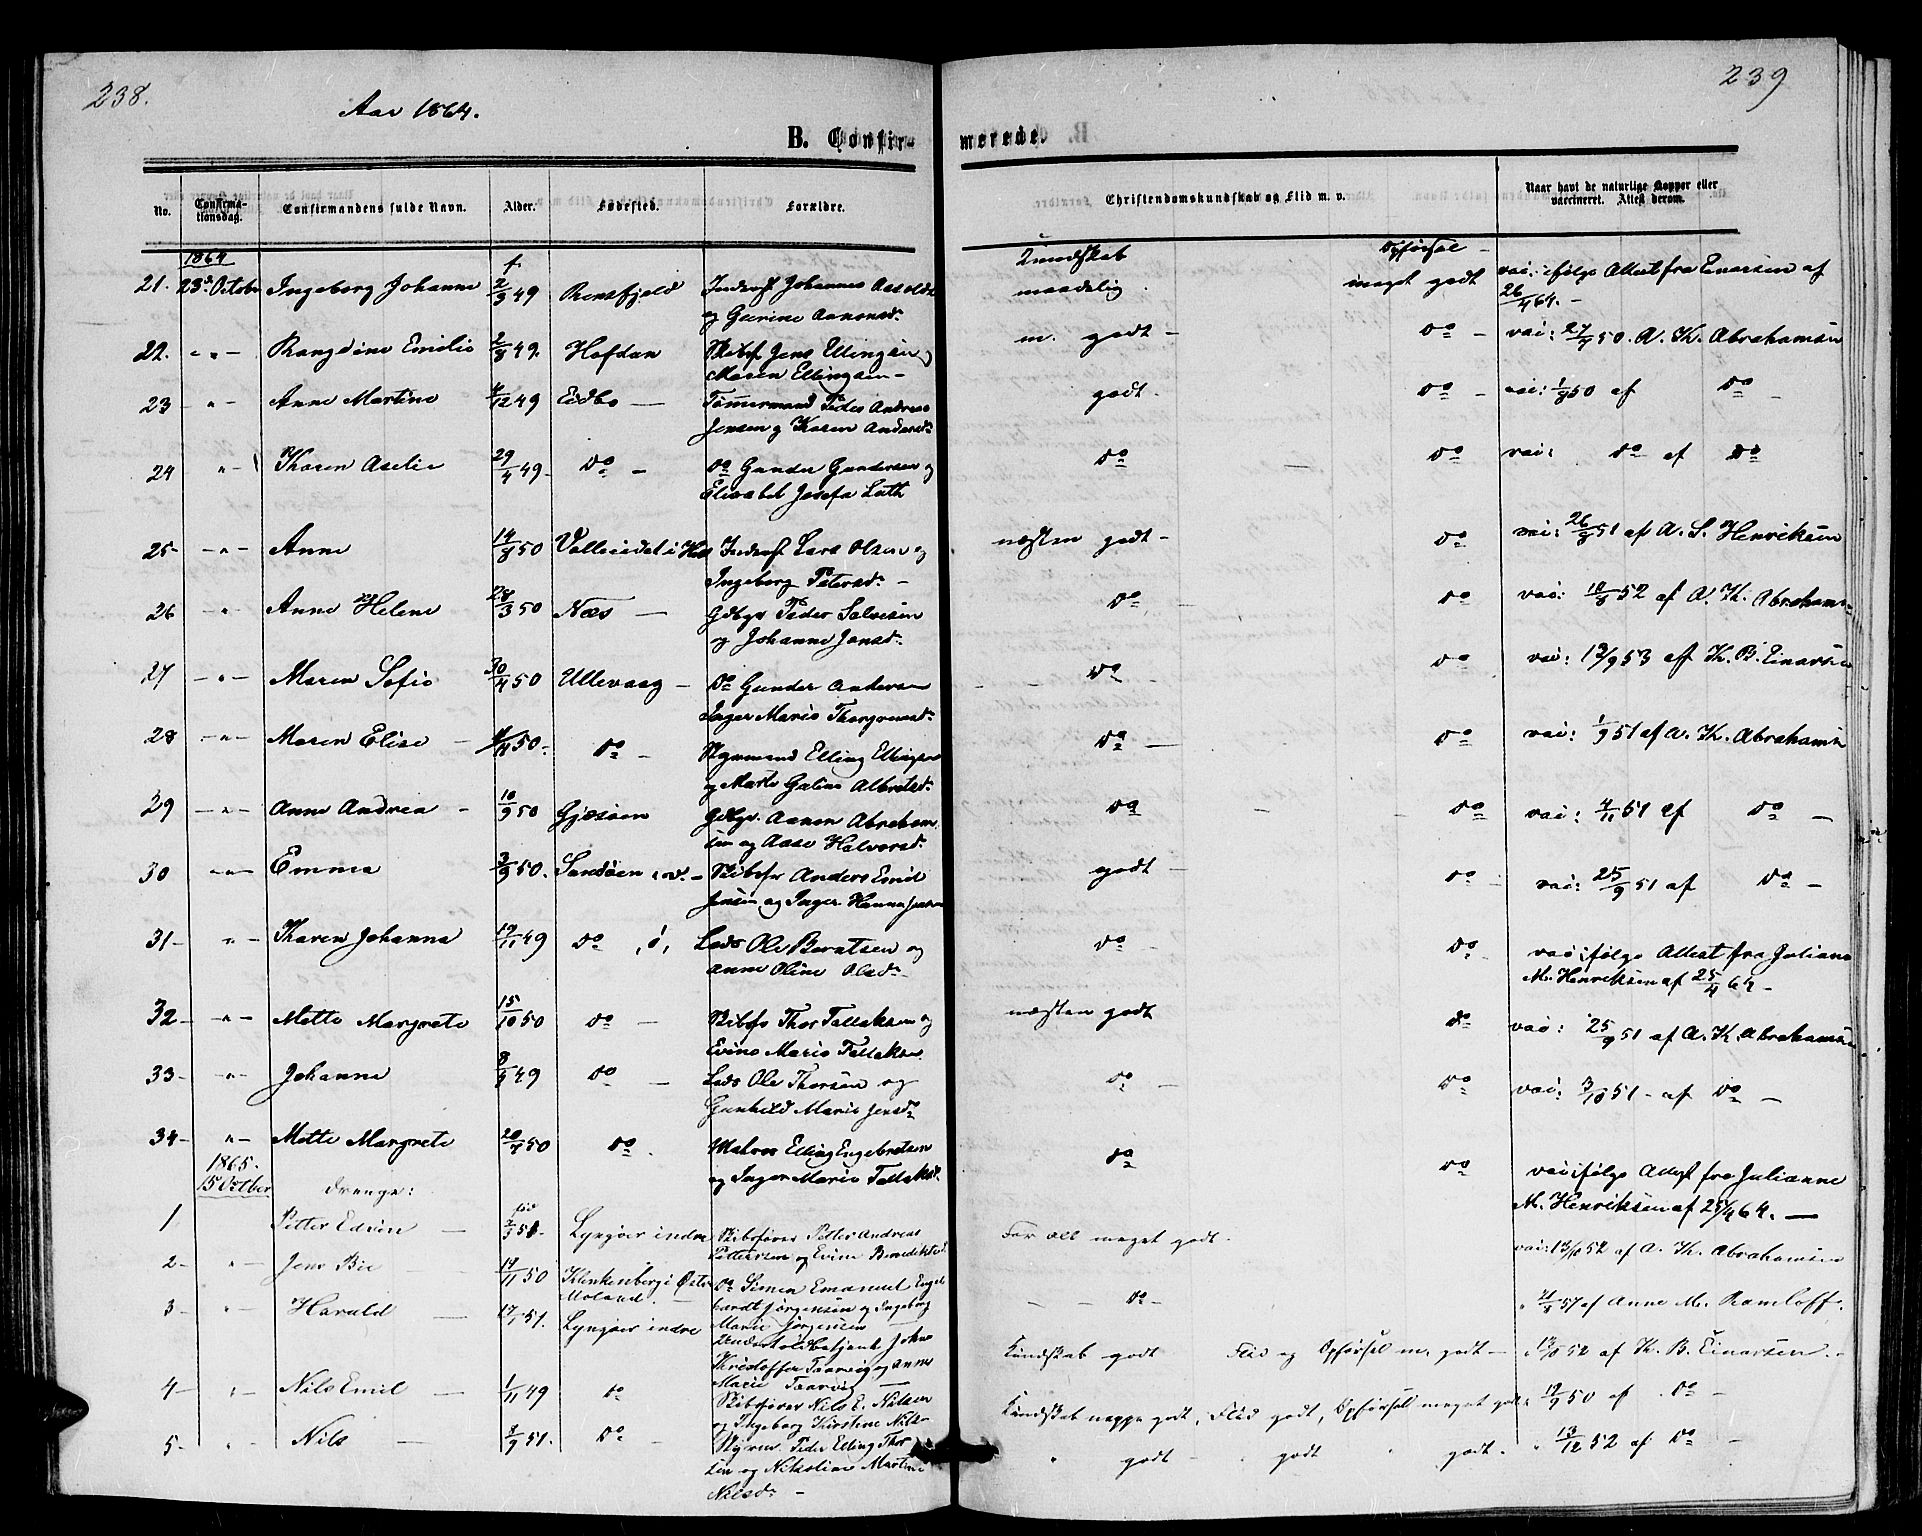 238.
239
Aar 1864.
B. Confirmerede.
No.
Confirmationsdag.
Confirmandens fulde Navn.
Alder.
Fødested.
Forældre.
Christendomskundskab og Flid m. v.
Naar havt de naturlige Kopper eller vaccineret. Attest derom.
1864
f.
Kundskab Opførsel -
21. 23de Octobr Ingeborg Johanne 2/3 49 Rensfjeld Inderst Johannes Aasoldsen maadelig. meget godt vac: ifølge Attest fra Einarsen af
og Gurine Aanonsd. 26/4 64. -
22. " - Rangdine Emilie 2/8 49. Hofdan Skibsf Jens Ellingsen og m. godt - do - vac: 27/7 50. A. K. Abrahamsen
Maren Ellingsen -
23 - " - Anne Martine 4/12 49 Eidbo - Tømmermand Peder Andreas godt. do - vac: 1/9 50 af do -
Jensen og Karen Andersd.
24 " - Karen Aselie 29/4 49 - do - do Gunder Gundersen og do - do vac: do af do
Elisabet Josefa Luth
25 - - " - Anne 14/8 50 Valleeidet i Holt Inderst Lars Olsen og næsten godt - do vac: 26/9 51 af A. S. Henriksen
Ingeborg Petersd. -
26 " - Anne Helene 28/3 50 Næs - Gdbgr Peder Salvesen do - do vac: 10/8 52 af A. K. Abrahams.
og Johanne Jonsd.
27 - " - Maren Sofie 30/4 50 Ullevaag - do Gunder Andersen do - do - vac: 13/9 53 af K. B. Einarsen
Inger Marie Thorgrimsd.
28 - " - Maren Elise - 50 - do - Styrmand Elling Ellingsen do - do vac: 1/9 51 af A. K. Abrahamsen
og Marte Galine Albretsd.
29 - " - Anne Andrea - 10/9 50 Gjesøen Gdbgr. Aanon Abraham do do vac: 4/11 51 af do -
sen og Aase Halvorsd.
30 - " - Emma 3/9 50. Sandøen v. - Skibsfr Anders Emil godt - do - vac: 25/9 51 af do -
Jensen og Inger Hanna
31 - " - Karen Johanna 19/11 49 do ø, Lods Ole Berntsen og do - do - vac ifølge Attest fra Juliane
Anne Oline Olsd. - M. Henriksen af 25/4 64 -
32 - - " - Mette Margrete 15/10 50 do - Skibsfr Thor Tallaksen og næsten godt do - vac: 25/9 51 af A. K. Abrahamsen
Evine Marie Tallaksen.
33 - - " - Johanne 8/9 49 do - Lods Ole Thorsen og do - do - vac: 3/10 51 - af do -
Gunhild Marie Jensd.
34 - " - Mette Margrete 20/7 50 do. Matros Elling Engebretsen do do vac ifølge Attest fra Julianne
og Inger Marie Tallaksd. M. Henriksen af 25/4 64. -
1865.
15 October
Drenge:
1 Petter Edvin - 2/3 51 - Lyngøer indre Skibsfører Petter Andreas For all meget godt. vac: 13/10 52 af A. K. Abrahamsen
Pettersen og Evine Benedikte
2 - " - Jens Bie 19/11 50 Klinkenberg i Østre Moland. - do Simen Emanuel Engel - - do - " af Anne M. Ramloff.
bardt Jørgensen og Ingeborg
Marie Jørgensen
3 - " - Harald - 17/1 51. Lyngøer indre Underholdbetjent Johs Kundskab godt Flid og Opførsel m. godt - 52 af K. B. Einarsen. -
Kristoffer Taarvig og Anne
Marie Taarvig
4 - " - Nils Emil - 1/11 49 do Skibsfører Nils E. Nilsen Kundskab neppe godt, Flid godt, Opførsel meget godt. 19/9 50 af do -
og Ingeborg Kirstine Nils-
5 - " - Nils - 8/9 51. do - Styrm. Peder Elling Thor " godt - " godt " godt. " 13/12 52 af do -
sen og Nikoline Martine
Nilsd. -